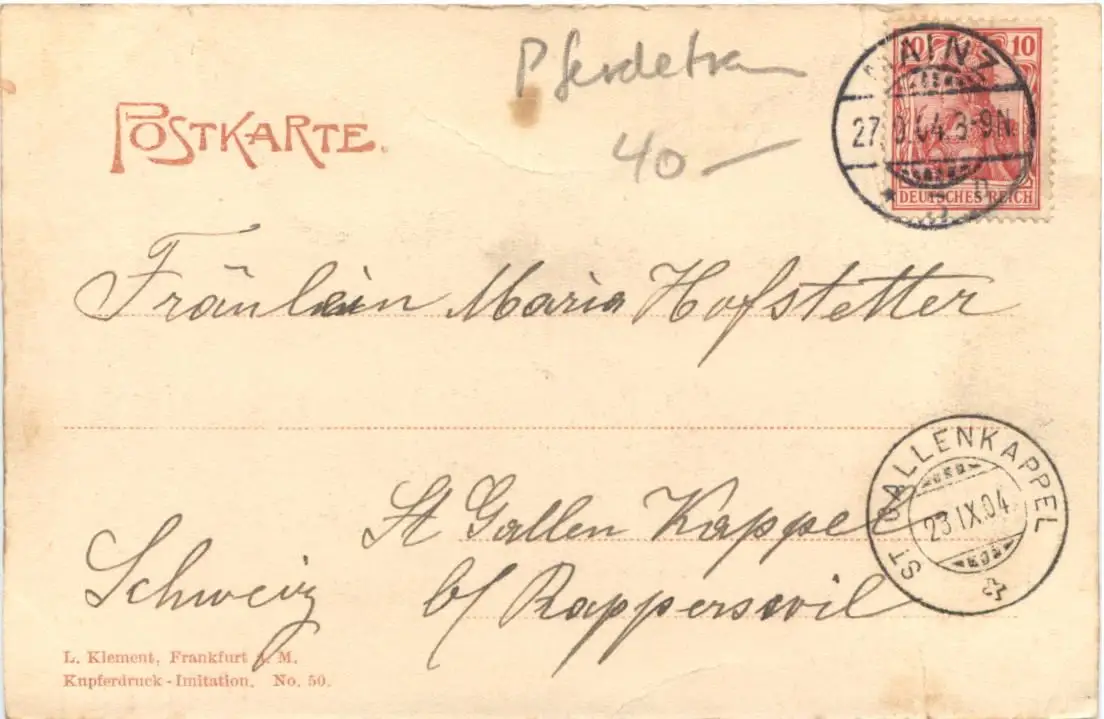 POSTKARTE.
Pferdetram
40 —
10 10
DEUTSCHES REICH
MAINZ
27. .04.8-9N.
Fräulein Maria Hofstetter
St Gallen Kappel
Schweiz b/ Rapperswil
ST GALLENKAPPEL
23.IX.04
L. Klement, Frankfurt a. M.
Kupferdruck-Imitation. No. 50.